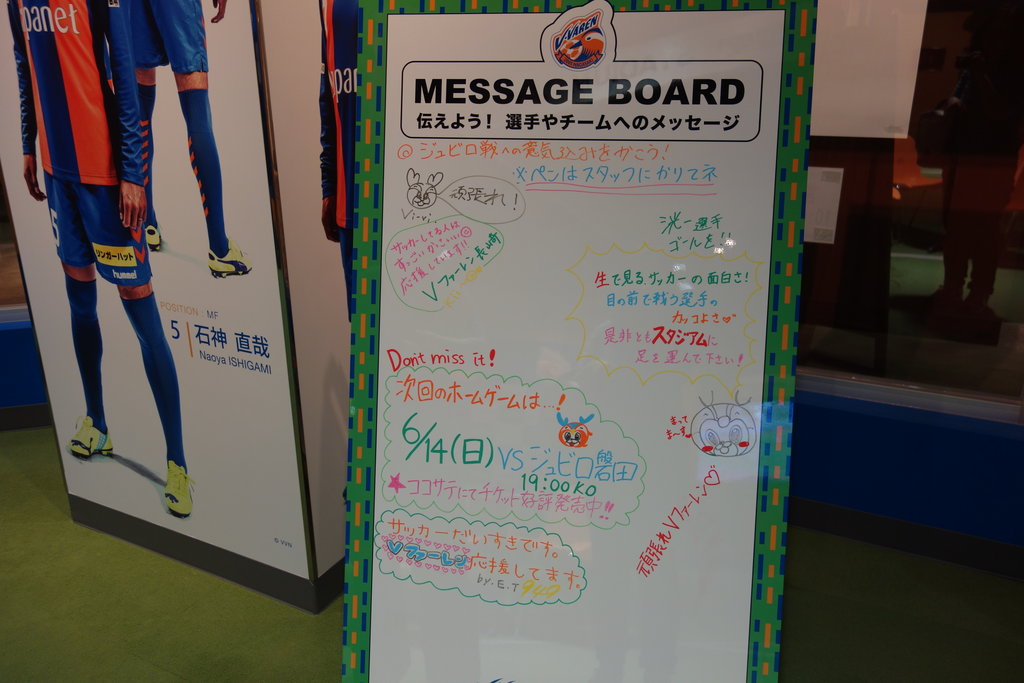 panet
ワンガーハット
hummel
POSITION : MF
5 石神 直哉
Naoya ISHIGAMI
© VVN
pan
V·VAREN
MESSAGE BOARD
伝えよう! 選手やチームへのメッセージ
◎ジュビロ戦への意気込みをかこう!
※ペンはスタッフにかりてネ
頑張れ!
Vi-vi
サッカーしてる人は
すっごいかっこいい◎
応援しています!!
Vファーレン長崎
洸一選手
ゴールを!!
生で見るサッカーの面白さ!
目の前で戦う選手の
カッコよさ♡
是非ともスタジアムに
足を運んで下さい!
Don't miss it!
次回のホームゲームは…!
6/14(日) VS ジュビロ磐田
19:00KO
★ココサテにてチケット好評発売中!!
まって
ま〜す
頑張れVファーレン♡
サッカーだいすきです。
Vファーレン応援してます。
by.E.T